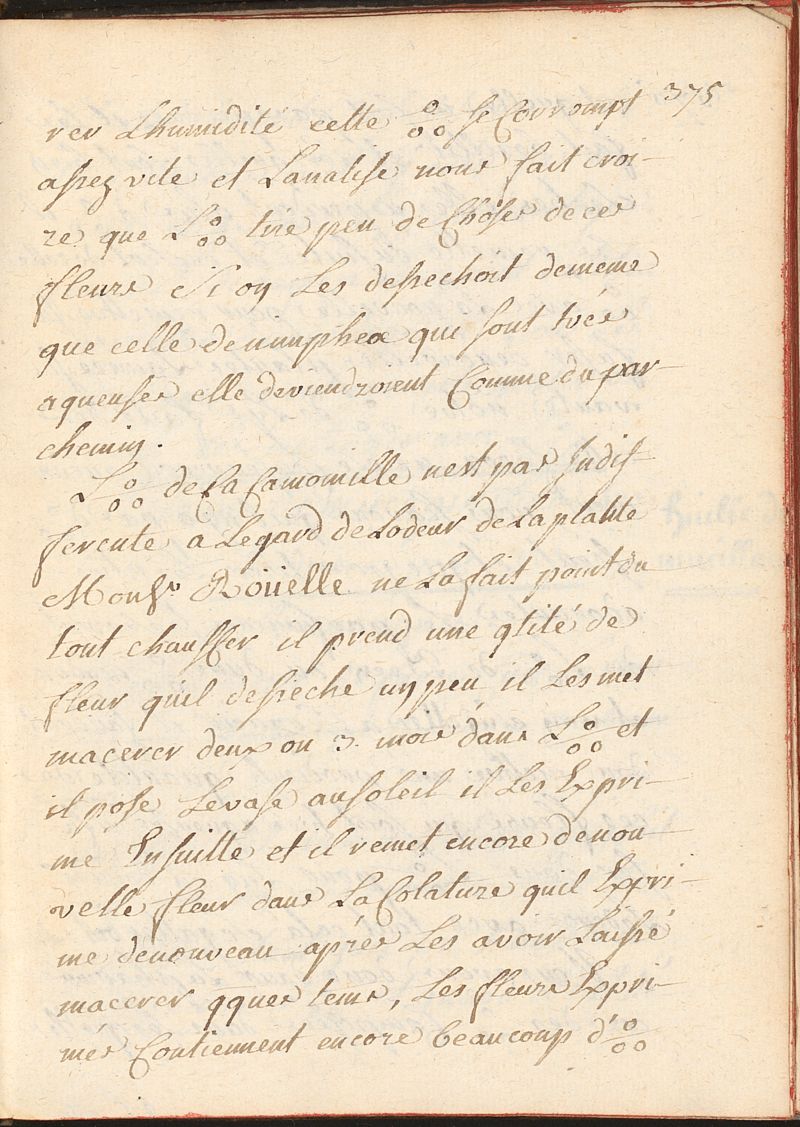 375
rer Lhumidité cette o/oo se Corrompt
assez vite et Lanalise nous fait croi-
re que Lo/oo tire peu de Choses de ces
fleurs Si on Les desechoit dememe
que celle de nimphea qui sont trés
aqueuses elle deviendroient Comme du par-
chemin.
Lo/oo de La Camomille nest pas Indif-
ferente a Legard de Lodeur de La plante
Monsr. Roüelle ne La fait point du
tout chauffer il prend une qtité de
fleur quil desseche un peu il Les met
macerer deux ou 3. mois dans Lo/oo et
il pose Levase au soleil il Les Expri-
me Ensuitte et il remet encore denou
velle fleur dans La Colature quil Expri-
me denouveau aprés Les avoir Laissé
macerer qques tems, Les fleurs Expri-
més Contiennent encore beaucoup d'o/oo